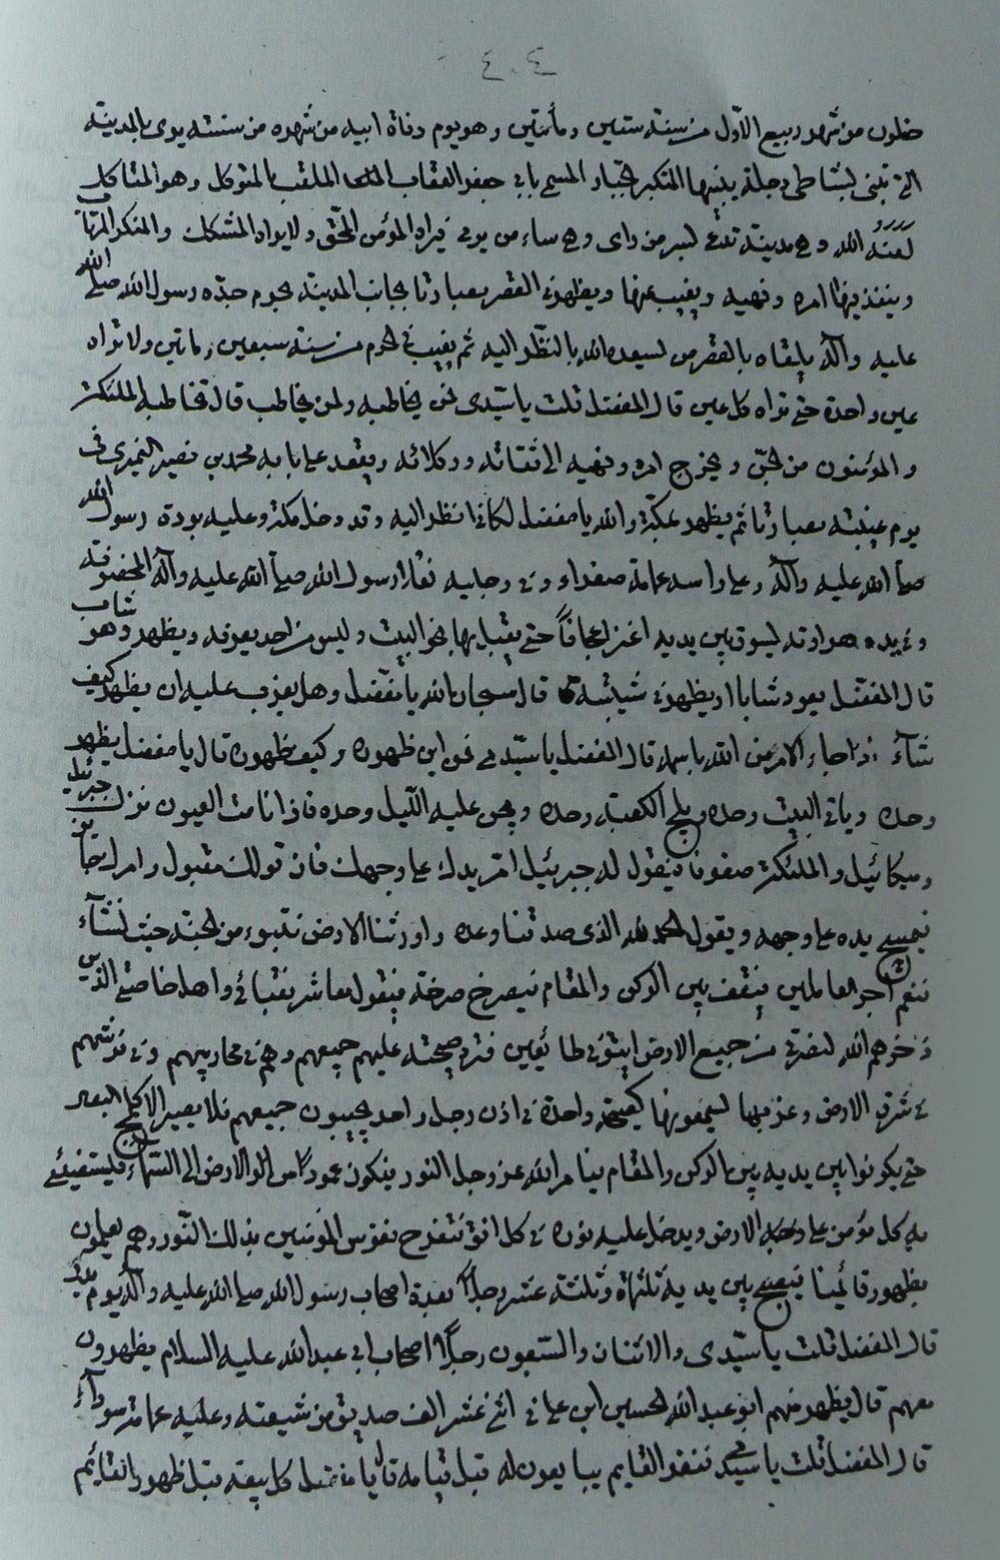 ٤٠٤
خلون من شهر ربيع الاوّل من سنة ستين ومأتين وهو يوم وفاة ابيه من شهوره من سنته يرى بالمدينة
التي تبنى بشاطى دجلة يبنيها المتكبر الجبار المسمى بابي جعفر الملقب بالمتوكل وهو المتاكل
لَعَنَهُ الله وهي مدينة تدعى لسر من راى وهي ساء من يرى فيراه المؤمن المحق ولا يراه المشكك والمنكر المرتاب
وينفذ فيها امره ونهيه ويغيب عنها ويظهر في القصر بصاريا بجانب المدينة بحرم جده رسول الله صلى الله
عليه وآله يلقاه بالقصر من يسعده الله بالنظر اليه ثم يغيب في اخر من سنة ستعين ومأتين ولا تراه
عين واحدة حتى تراه كل عين قال المفضل قلت ياسيّدى فمن يخاطبه ولمن يخاطب قال تخاطبه الملئكة
والمؤمنون من الجن ويخرج امره ونهيه الى ثقاته ووكلائه ويقعد على بابه محمد بن نصير النميرى في
يوم غيبته بصاريا ثم يظهر بمكة والله يا مفضل لكانى انظر اليه وقد دخل مكة وعليه بردة رسول الله
صلى الله عليه وآله وعلى راسه عمامة صفراء وفى رجليه نعلا رسول الله صلى الله عليه وآله المخصوفة
وفى يده هراوته يسوق بين يديه اعنز عجافاً حتى يقبل بها نحو البيت وليس من احد يعرفه ويظهر وهو شاب
قال المفضل يعود شابا او يظهر فى شيبته قال سبحان الله يا مفضل وهل يعزب عليه ان يظهر كيف
شآء اذا جاء الامر من الله باسمه قال المفضل ياسيّدى فمن اين ظهوره وكيف ظهوره قال يا مفضل يظهر
وحده وياتى البيت وحده ويلج الكعبة وحده ويجن عليه الليل وحده فاذا نامت العيون نزل جبرئيل
وميكائيل والملئكة صفوفا فيقول له جبرئيل امر يدك على وجهك فان قولك مقبول وامرك جائز
فيمسح يده على وجهه ويقول الحمد لله الذى صدقنا وعده واورثنا الارض نتبوء من الجنة حيث نشآء
فنعم اجر العاملين فيقف بين الركن والمقام فيصرخ صرخة فيقول معاشر نقبائى واهل خاصتى الذين
ذخرهم الله لنصرتى من جميع الارض ايتونى طائعين فترد صيحته عليهم جميعهم وهم فى محاريبهم وفى فرشهم
فى شرق الارض وغربها ليسمعونها كصيحة واحدة فى اذن رجل واحد يجيبون جميعهم فلا يصير الا كلمح البصر
حتى يكونوا بين يديه بين الركن والمقام فيامر الله عزوجل النور فيكون عمودا من الارض الى السماء فيستضيئ
به كل مؤمن على وجه الارض ويدخل عليه نوره فى كل افق فتفرح نفوس المؤمنين بذلك النّور وهم يعلمون
بظهور قائمنا فيصبح بين يديه ثلثماة وثلثة عشر رجلاً كعدة اصحاب رسول الله صلى الله عليه وآله يوم بدر
قال المفضل قلت ياسيّدى والاثنان والسبعون رجلاً اصحاب ابى عبد الله عليه السلام يظهرون
معهم قال يظهر منهم ابو عبد الله الحسين ابن على فى اثنى عشر الف صديق من شيعته وعليه عمامة سودآء
قال المفضل قلت ياسيدى فبغير القايم يبايعون له قبل قيامه قال يا مفضل كل بيعة قبل ظهور القايم